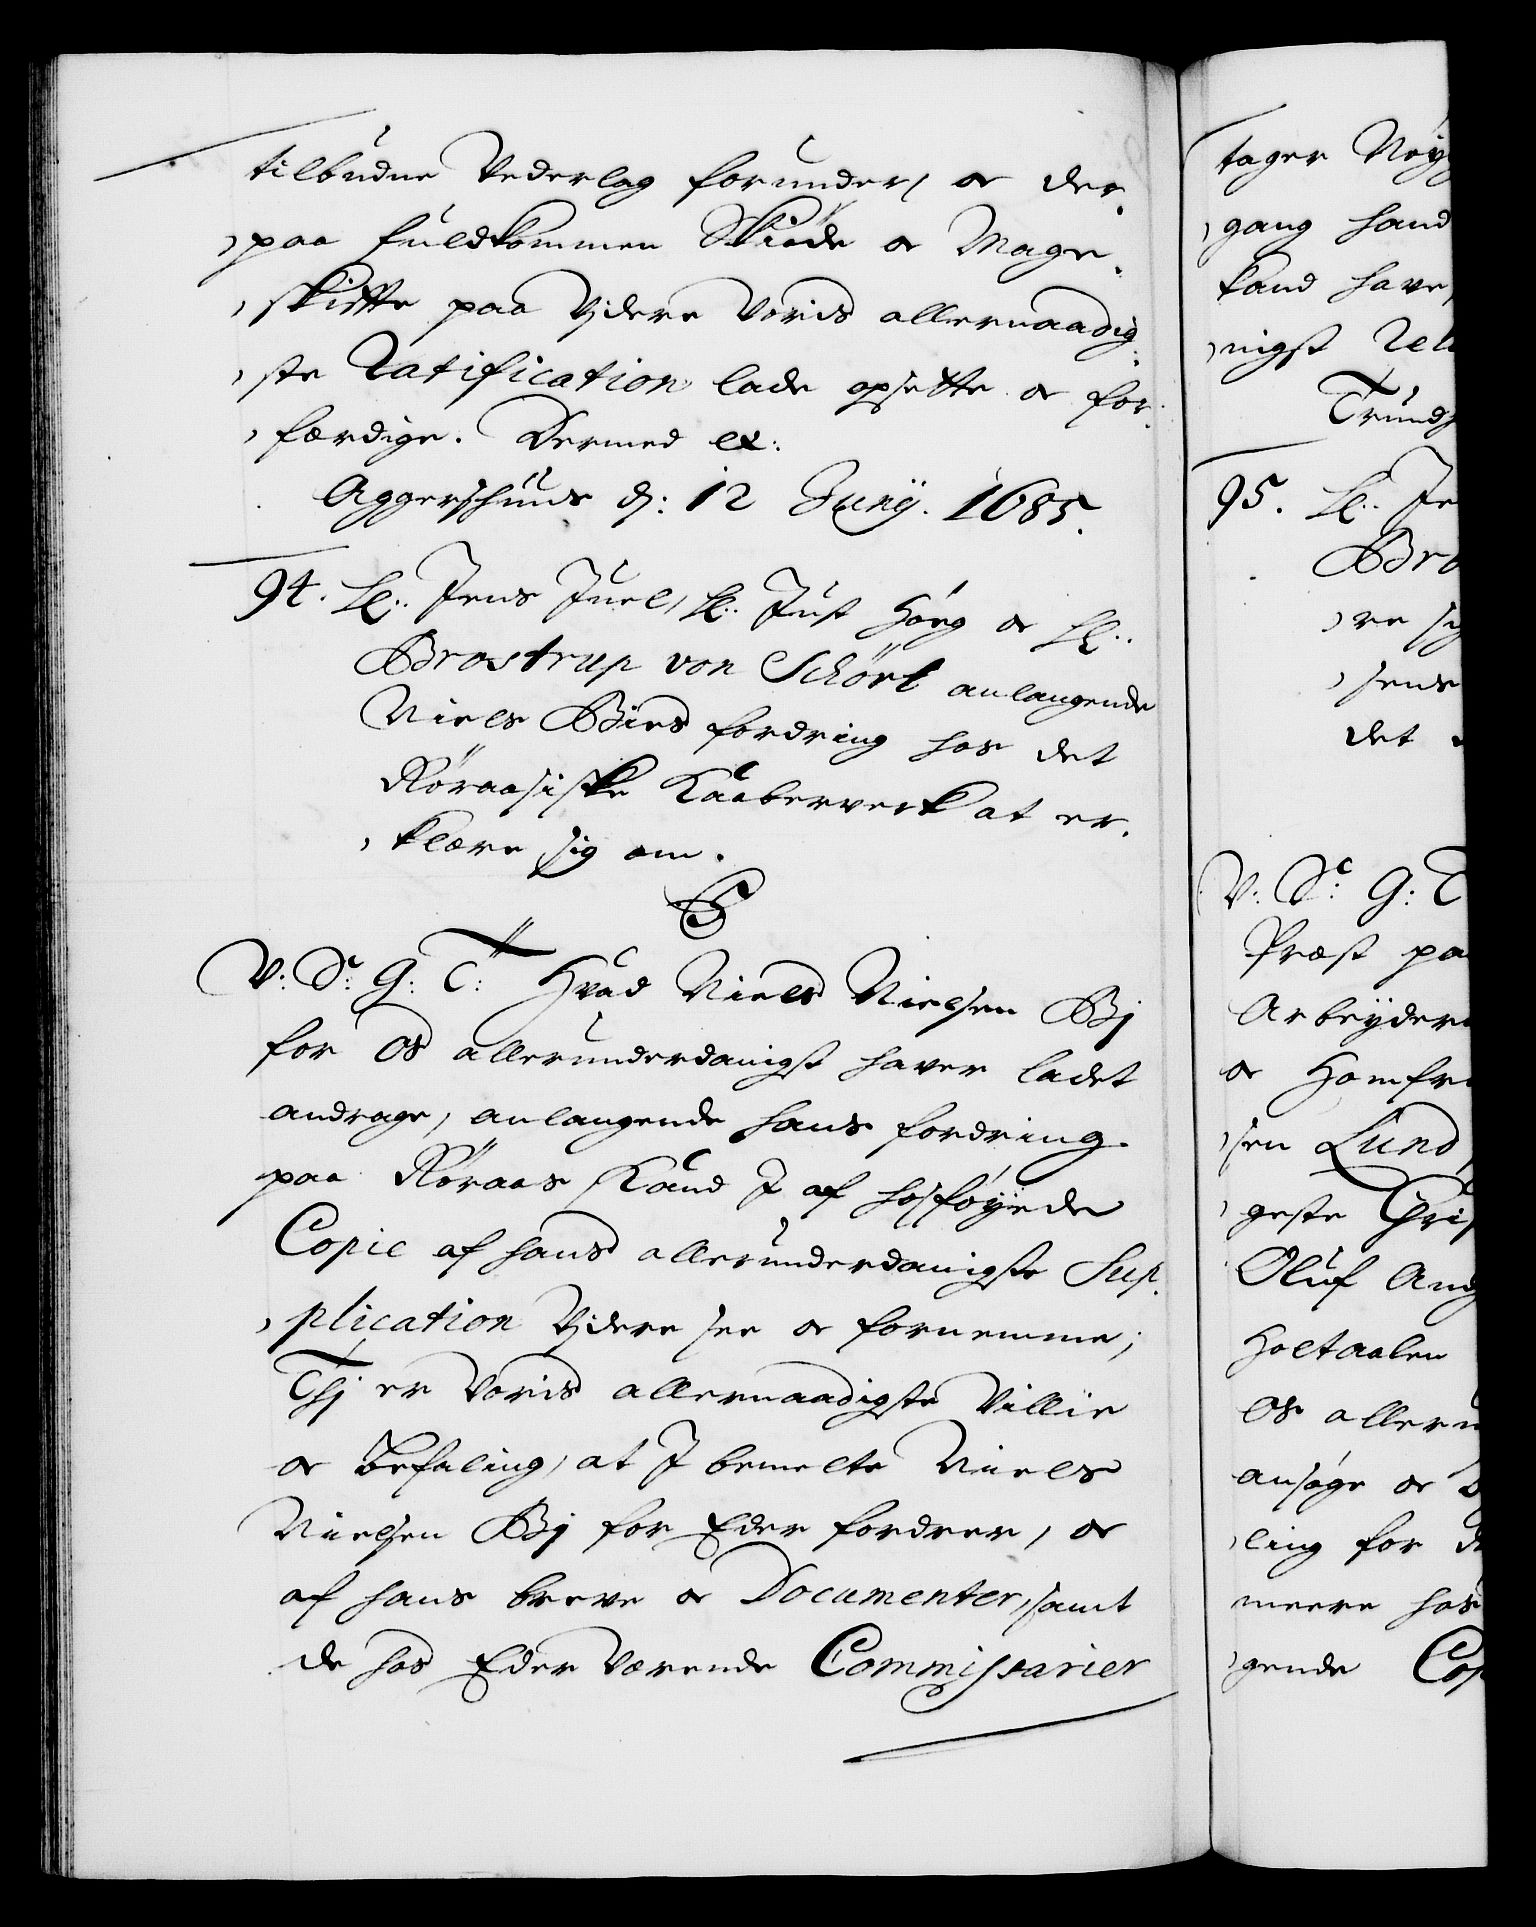 tilbudne Vederlag forunder, og der,
,paa fuldkommen Skiøde og Mage,
,skiffte paa Videre Voris allernaadig,
,ste Ratification, lade opsette og for,
,færdige. Dermed etc:
Aggershuus d: 12 Junij. 1685.
94. Hr: Jens Juel, Hr: Just Høeg og Hr:
Brostrup von Schört anlangende
Niels Bies fordring hos det
Røraasiske Kaaberverk at er,
,klære sig om.
V: S: G: T: Hvad Niels Nielsen Bj
for Os allerunderdanigst haver ladet
andrage, anlangende hans fordring
paa Røraas Kand J af hosføyede
Copie af hans allerunderdanigste Sup,
,plication Videre see og fornemme;
Thj er Voris allernaadigste Villie
og befaling, at J bemelte Niels
Nielsen Bj for Eder fordrer, og
af hans breve og Documenter, samt
de hos Eder Værende Commissarier
tager Nøy
,gang hand
kand have,
,nigst Rel
Trundh
95. Hr: Je
Bro
,re sig
,sens
det
V: S: G: T
Præst pa
Arbeyder
og Homfr
,sen Lund,
,geste Chris
Oluf And
Holtaalen
Os alleru
ansøge og
,ling for
meere hos
,gende Cop